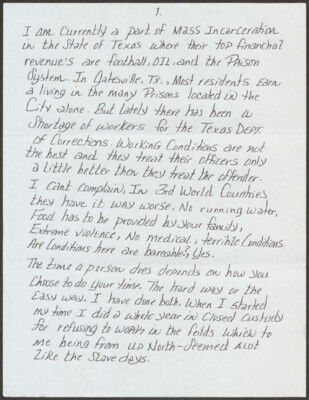 1.
I am currently a part of Mass Incarceration
in the State of Texas where their top financial
revenue's are football, OIL. and the Prison
System. In Gatesville, Tx., Most residents earn
a living in the many Prisons located in the
City alone. But lately there has been a
Shortage of workers for the Texas DEPT.
of Corrections. Working Conditions are not
the best and they treat their officers only
a little better then they treat the offender.
I can't complain, In 3rd World Countries
they have it way worse. No running water,
Food has to be provided by your family,
Extreme violence, No medical, terrible Conditions.
Are Conditions here are bareable?, Yes.
The time a person does depends on how you
Choose to do your time. The hard way or the
Easy way. I have done both. When I started
my time I did a whole year in Closed Custody
for refusing to work in the fields which to
me being from up North-seemed alot
Like the Slave days.